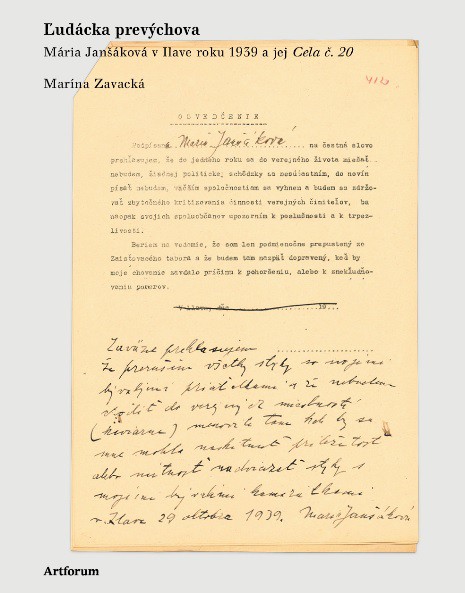 Ľudácka prevýchova
Mária Janšáková v Ilave roku 1939 a jej Cela č. 20
Marína Zavacká
412.
OSVEDČENIE
Podpísaná Mária Janšáková na čestné slovo
prehlasujem, že do jedného roku sa do verejného života miešať
nebudem, žiadnej politickej schôdzky sa nezúčastním, do novín
písať nebudem, väčším spoločnostiam sa vyhnem a budem sa zdržo-
vať zbytočného kritizovania činnosti verejných činiteľov, ba
naopak svojich spoluobčanov upozorním k poslušnosti a k trpez-
livosti.
Beriem na vedomie, že som len podmienečne prepustený zo
Zaisťovacieho tábora a že budem tam nazpäť dopravený, keď by
moje chovanie zavdalo príčinu k pohoršeniu, alebo k znekluďňo-
vaniu pomerov.
V Ilave, dňa 19
Záväzne prehlasujem
že preruším všetky styky so svojimi
bývalými priateľkami a že nebudem
chodiť do verejných miestností
(kaviarne) menovite tam kde by sa
mne mohla naskytnúť príležitosť
alebo nútnosť nadviazať styky s
mojimi bývalými kamarátkami
v Ilave 29 októbra 1939. Mária Janšáková
Artforum